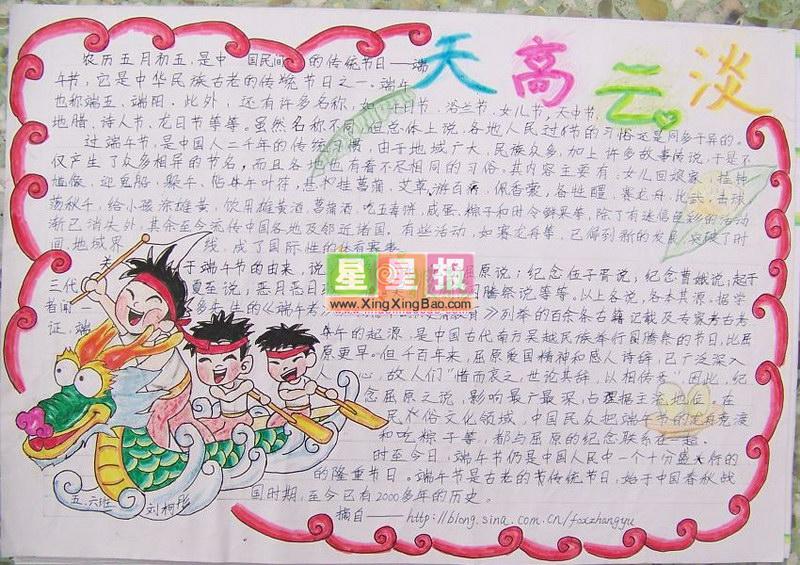 天高云淡
农历五月初五,是中国民间的传统节日——端
午节,它是中华民族古老的传统节日之一。端午
也称端五,端阳。此外,还有许多名称,如:午日节、浴兰节,女儿节,天中节、
地腊、诗人节、龙日节等等。虽然名称不同,但总体上说,各地人民过节的习俗还是同多于异的。
过端午节,是中国人二千年的传统习惯,由于地域广大,民族众多,加上许多故事传说,于是不
仅产生了众多相异的节名,而且各地也有着不尽相同的习俗。其内容主要有:女儿回娘家,挂钟
馗像,迎鬼船、躲午、帖午叶符,悬挂菖蒲、艾草,游百病,佩香囊,备牲醴,赛龙舟,比武,击球,
荡秋千,给小孩涂雄黄,饮用雄黄酒、菖蒲酒,吃五毒饼、咸蛋、粽子和时令鲜果等,除了有迷信色彩的活动
渐已消失外,其余至今流传中国各地及邻近诸国。有些活动,如赛龙舟等,已得到新的发展,突破了时
间,地域界线,成了国际性的体育赛事。
关于端午节的由来,说
屈原说;纪念伍子胥说;纪念曹娥说;起于
三代夏至说;恶月恶日
图腾祭说等等。以上各说,各本其源。据学
者闻一多先生的《端午考》
》列举的百余条古籍记载及专家考古考
证,端午的起源,是中国古代南方吴越民族举行图腾祭的节日,比屈
原更早。但千百年来,屈原爱国精神和感人诗辞,已广泛深入
人心,故人们"惜而哀之,世论其辞,以相传焉"因此,纪
念屈原之说,影响最广最深,占据主流地位。在
民俗文化领域,中国民众把端午节的龙舟竞渡
和吃粽子等,都与屈原的纪念联系在一起。
时至今日,端午节仍是中国人民中一个十分盛行的
的隆重节日。端午节是古老的传统节日,始于中国春秋战
国时期,至今已有2000多年的历史。
摘自——http://blong.sina.com.cn/foxzhangyu
五.六班 刘柯彤
星星报
www.XingXingBao.com